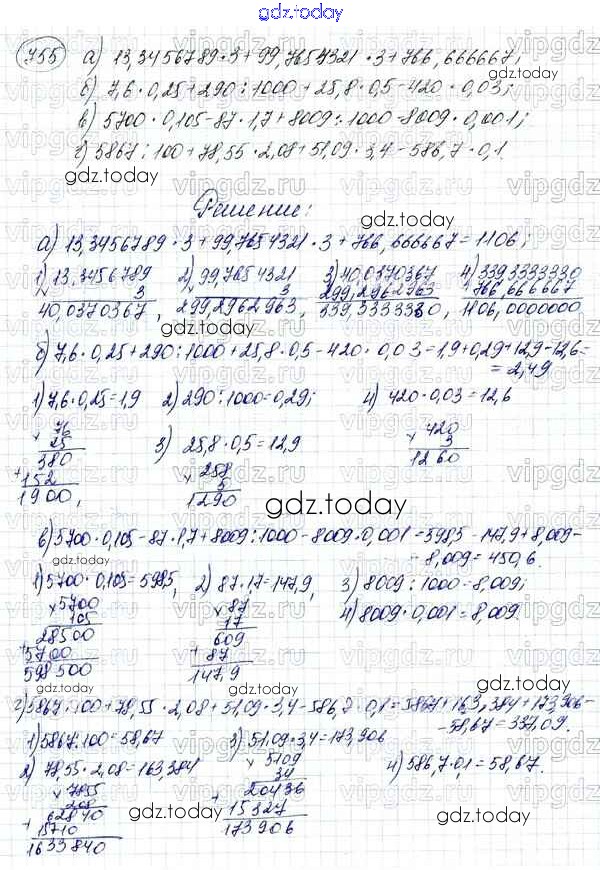 gdz.today
755 а) 13,3456789 · 3 + 99,7654321 · 3 + 766,666667;
б) 7,6 · 0,25 + 290 : 1000 + 25,8 · 0,5 - 420 · 0,03;
в) 5700 · 0,105 - 87 · 1,7 + 8009 : 1000 - 8009 · 0,001;
г) 5867 : 100 + 78,55 · 2,08 + 51,09 · 3,4 - 586,7 · 0,1.
gdz.today
Решение:
gdz.today
а) 13,3456789 · 3 + 99,7654321 · 3 + 766,666667 = 1106;
1) 13,3456789 2) 99,7654321 3) 40,0370367 4) 339,3333330
× 3 × 3 299,2962963 + 766,666667
40,0370367, 299,2962963, 339,3333330, 1106,0000000
gdz.today
б) 7,6 · 0,25 + 290 : 1000 + 25,8 · 0,5 - 420 · 0,03 = 1,9 + 0,29 + 12,9 - 12,6 =
= 2,49
1) 7,6 · 0,25 = 1,9 2) 290 : 1000 = 0,29; 4) 420 · 0,03 = 12,6
× 76 × 420
25 3) 25,8 · 0,5 = 12,9 3
380 × 258 1260
+ 152 5
1900, 1290
gdz.today
в) 5700 · 0,105 - 87 · 1,7 + 8009 : 1000 - 8009 · 0,001 = 598,5 - 147,9 + 8,009 -
- 8,009 = 450,6.
1) 5700 · 0,105 = 598,5, 2) 87 · 1,7 = 147,9, 3) 8009 : 1000 = 8,009;
× 5700 × 87 4) 8009 · 0,001 = 8,009.
105 17
28500 609
+ 5700 + 87
598500 147,9
gdz.today
г) 5867 : 100 + 78,55 · 2,08 + 51,09 · 3,4 - 586,7 · 0,1 = 58,67 + 163,384 + 173,906 -
- 58,67 = 337,09.
1) 5867 : 100 = 58,67 3) 51,09 · 3,4 = 173,906
2) 78,55 · 2,08 = 163,384 × 5109 4) 586,7 · 0,1 = 58,67.
× 7855 34
208 20436
62840 + 15327
+ 15710 173906
1633840
gdz.today
gdz.today
vipgdz.ru